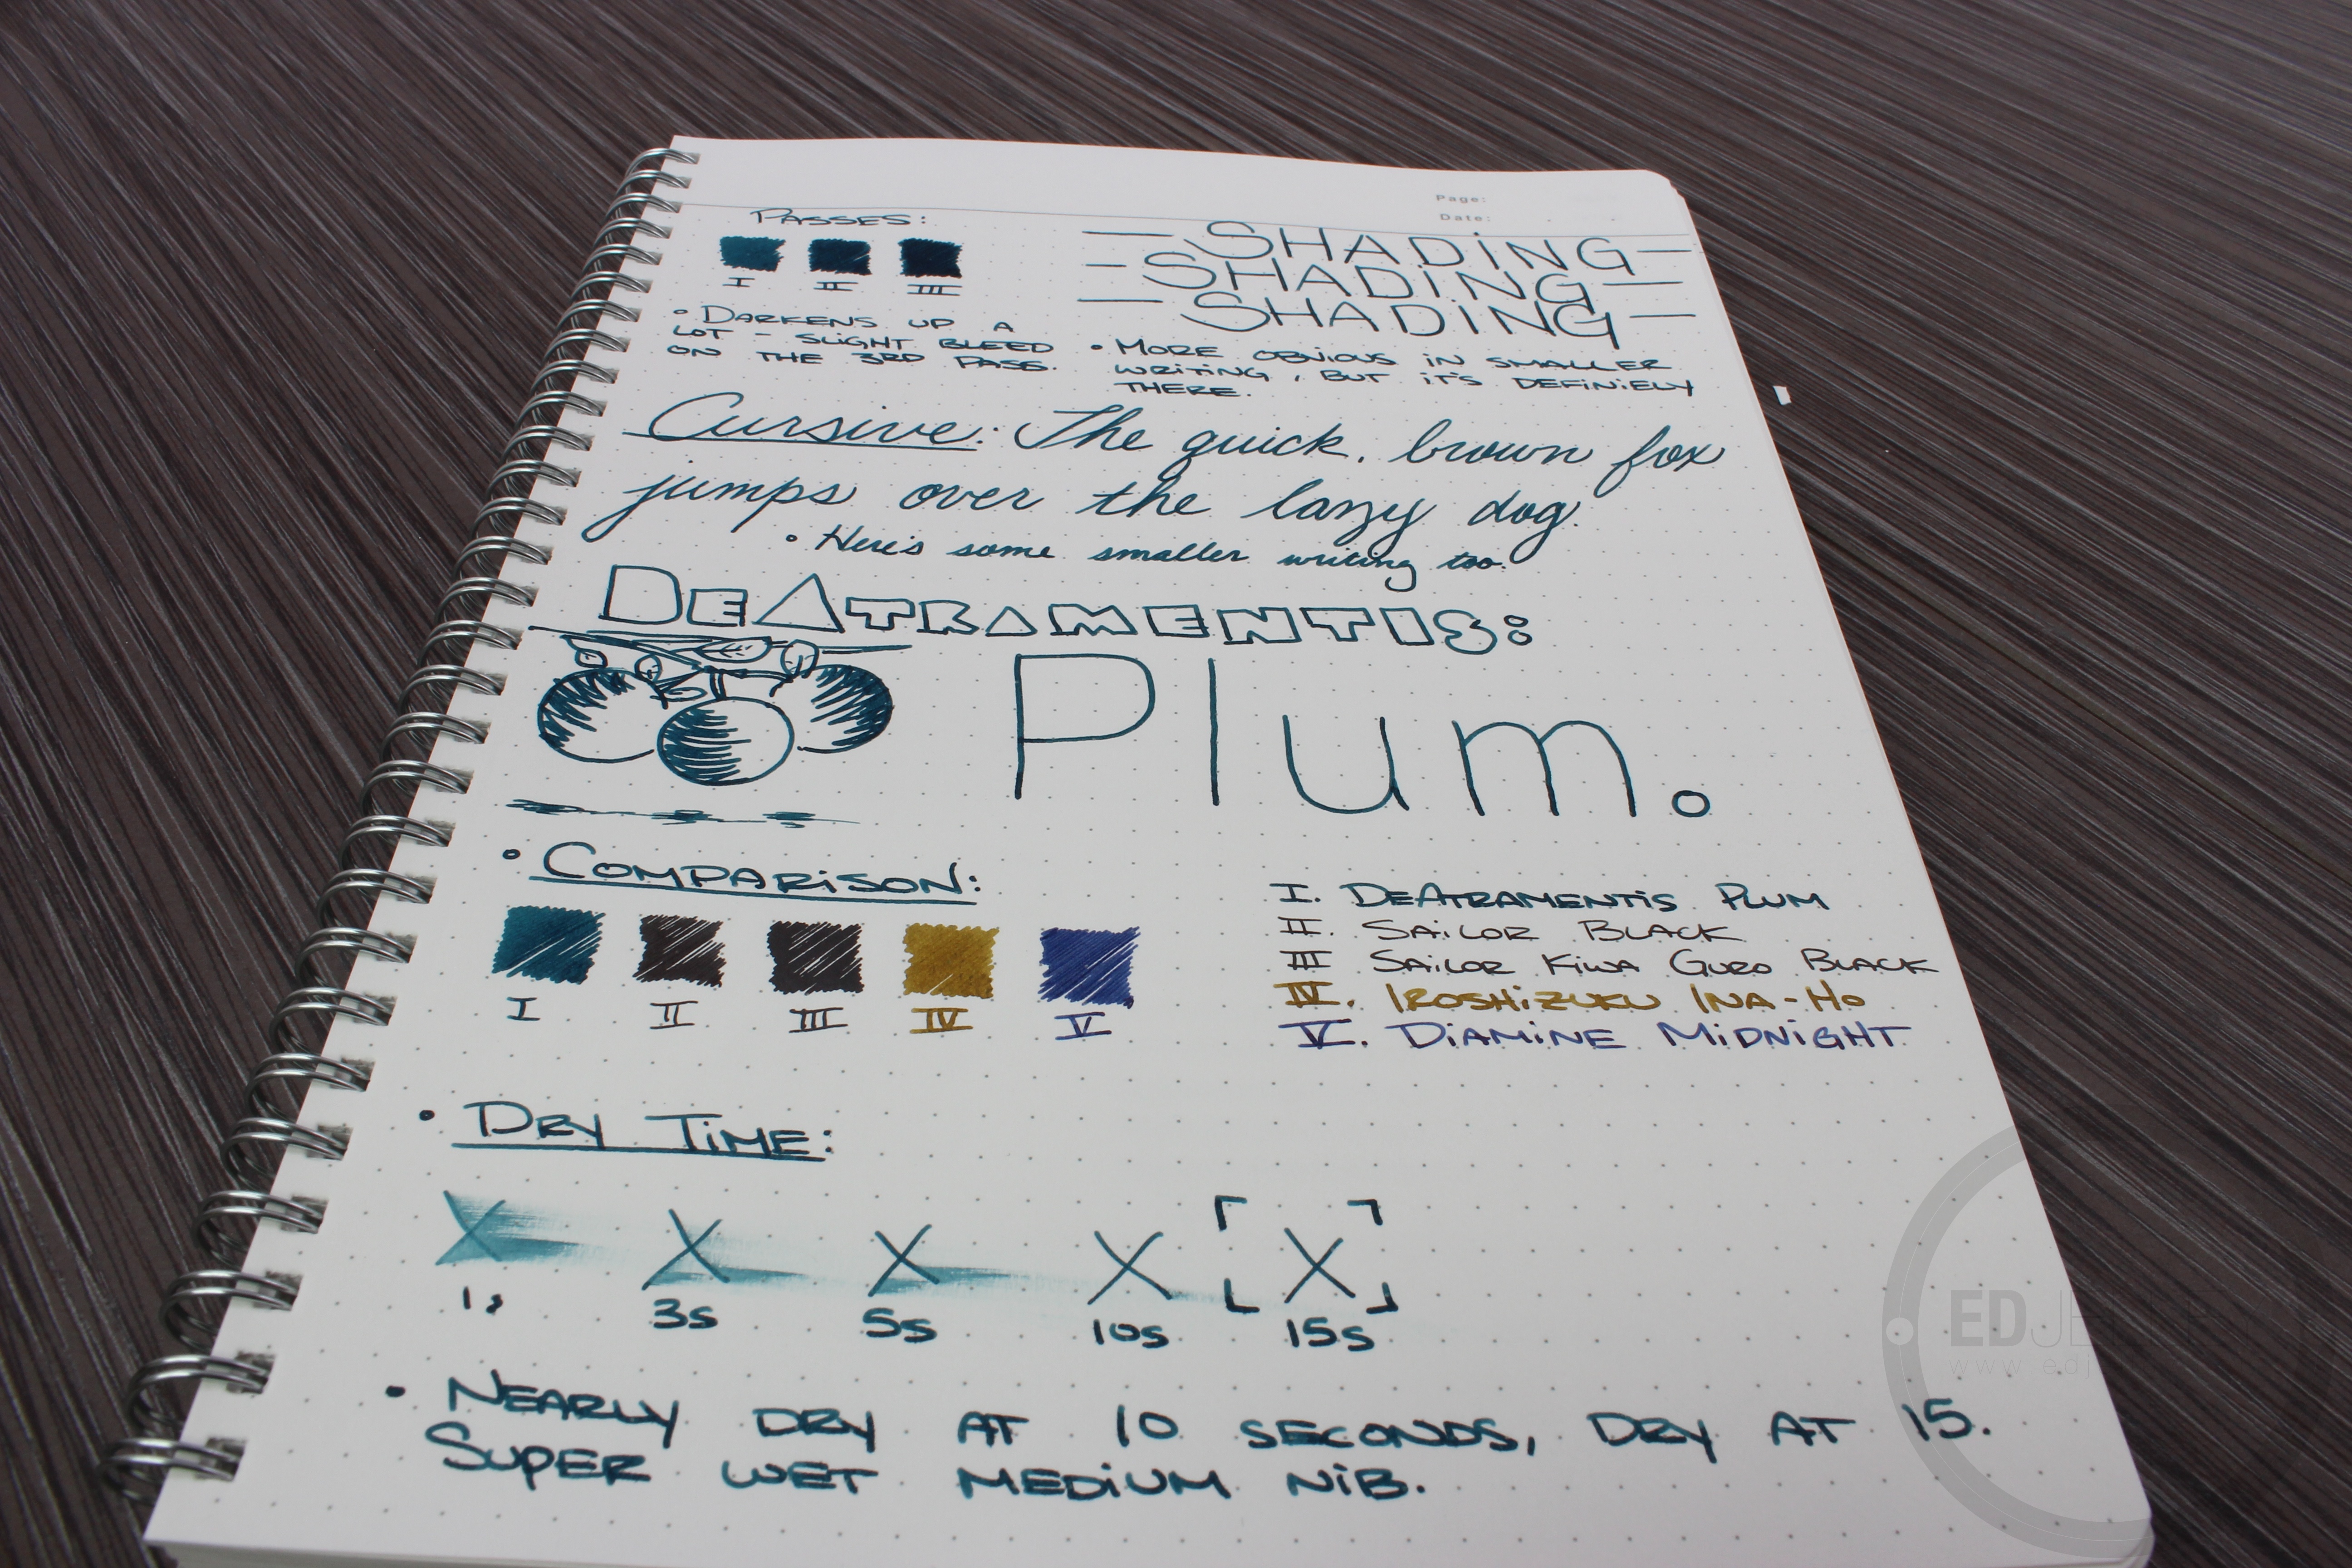 Page:
Date:
PASSES:
I II III
• DARKENS UP A
LOT - SLIGHT BLEED
ON THE 3RD PASS.
SHADING
SHADING
SHADING
• MORE OBVIOUS IN SMALLER
WRITING, BUT IT'S DEFINIELY
THERE.
Cursive: The quick, brown fox
jumps over the lazy dog.
• Here's some smaller writing too.
DEATRAMENTIS:
Plum.
• COMPARISON:
I II III IV V
I. DEATRAMENTIS PLUM
II. SAILOR BLACK
III SAILOR KIWA GURO BLACK
IV. IROSHIZUKU INA-HO
V. DIAMINE MIDNIGHT
• DRY TIME:
X X X X X
1s 3s 5s 10s 15s
• NEARLY DRY AT 10 SECONDS, DRY AT 15.
SUPER WET MEDIUM NIB.